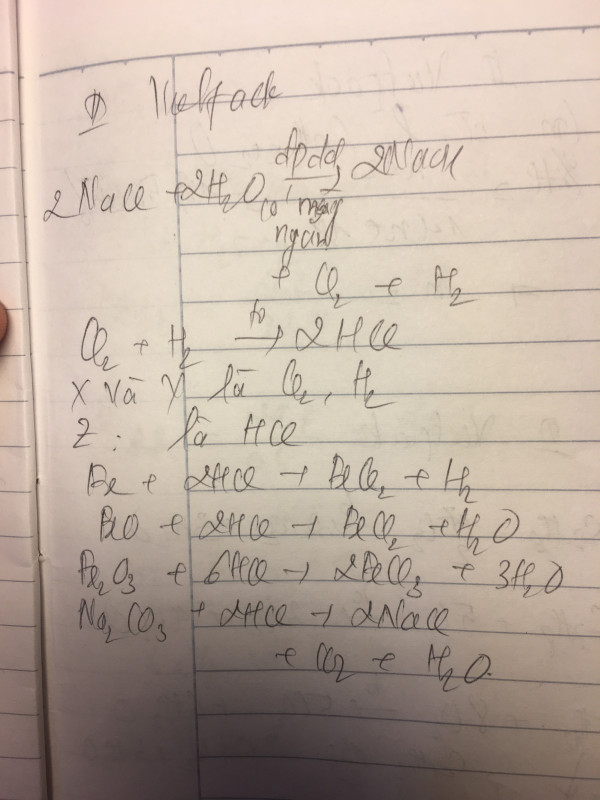 ① Vietjack
2NaCl + 2H₂O đpdd → 2NaOH
có màng
ngăn
+ Cl₂ + H₂
Cl₂ + H₂ t° → 2HCl
X và Y là Cl₂, H₂
Z: là HCl
Fe + 2HCl → FeCl₂ + H₂
FeO + 2HCl → FeCl₂ + H₂O
Fe₂O₃ + 6HCl → 2FeCl₃ + 3H₂O
Na₂CO₃ + 2HCl → 2NaCl
+ CO₂ + H₂O.